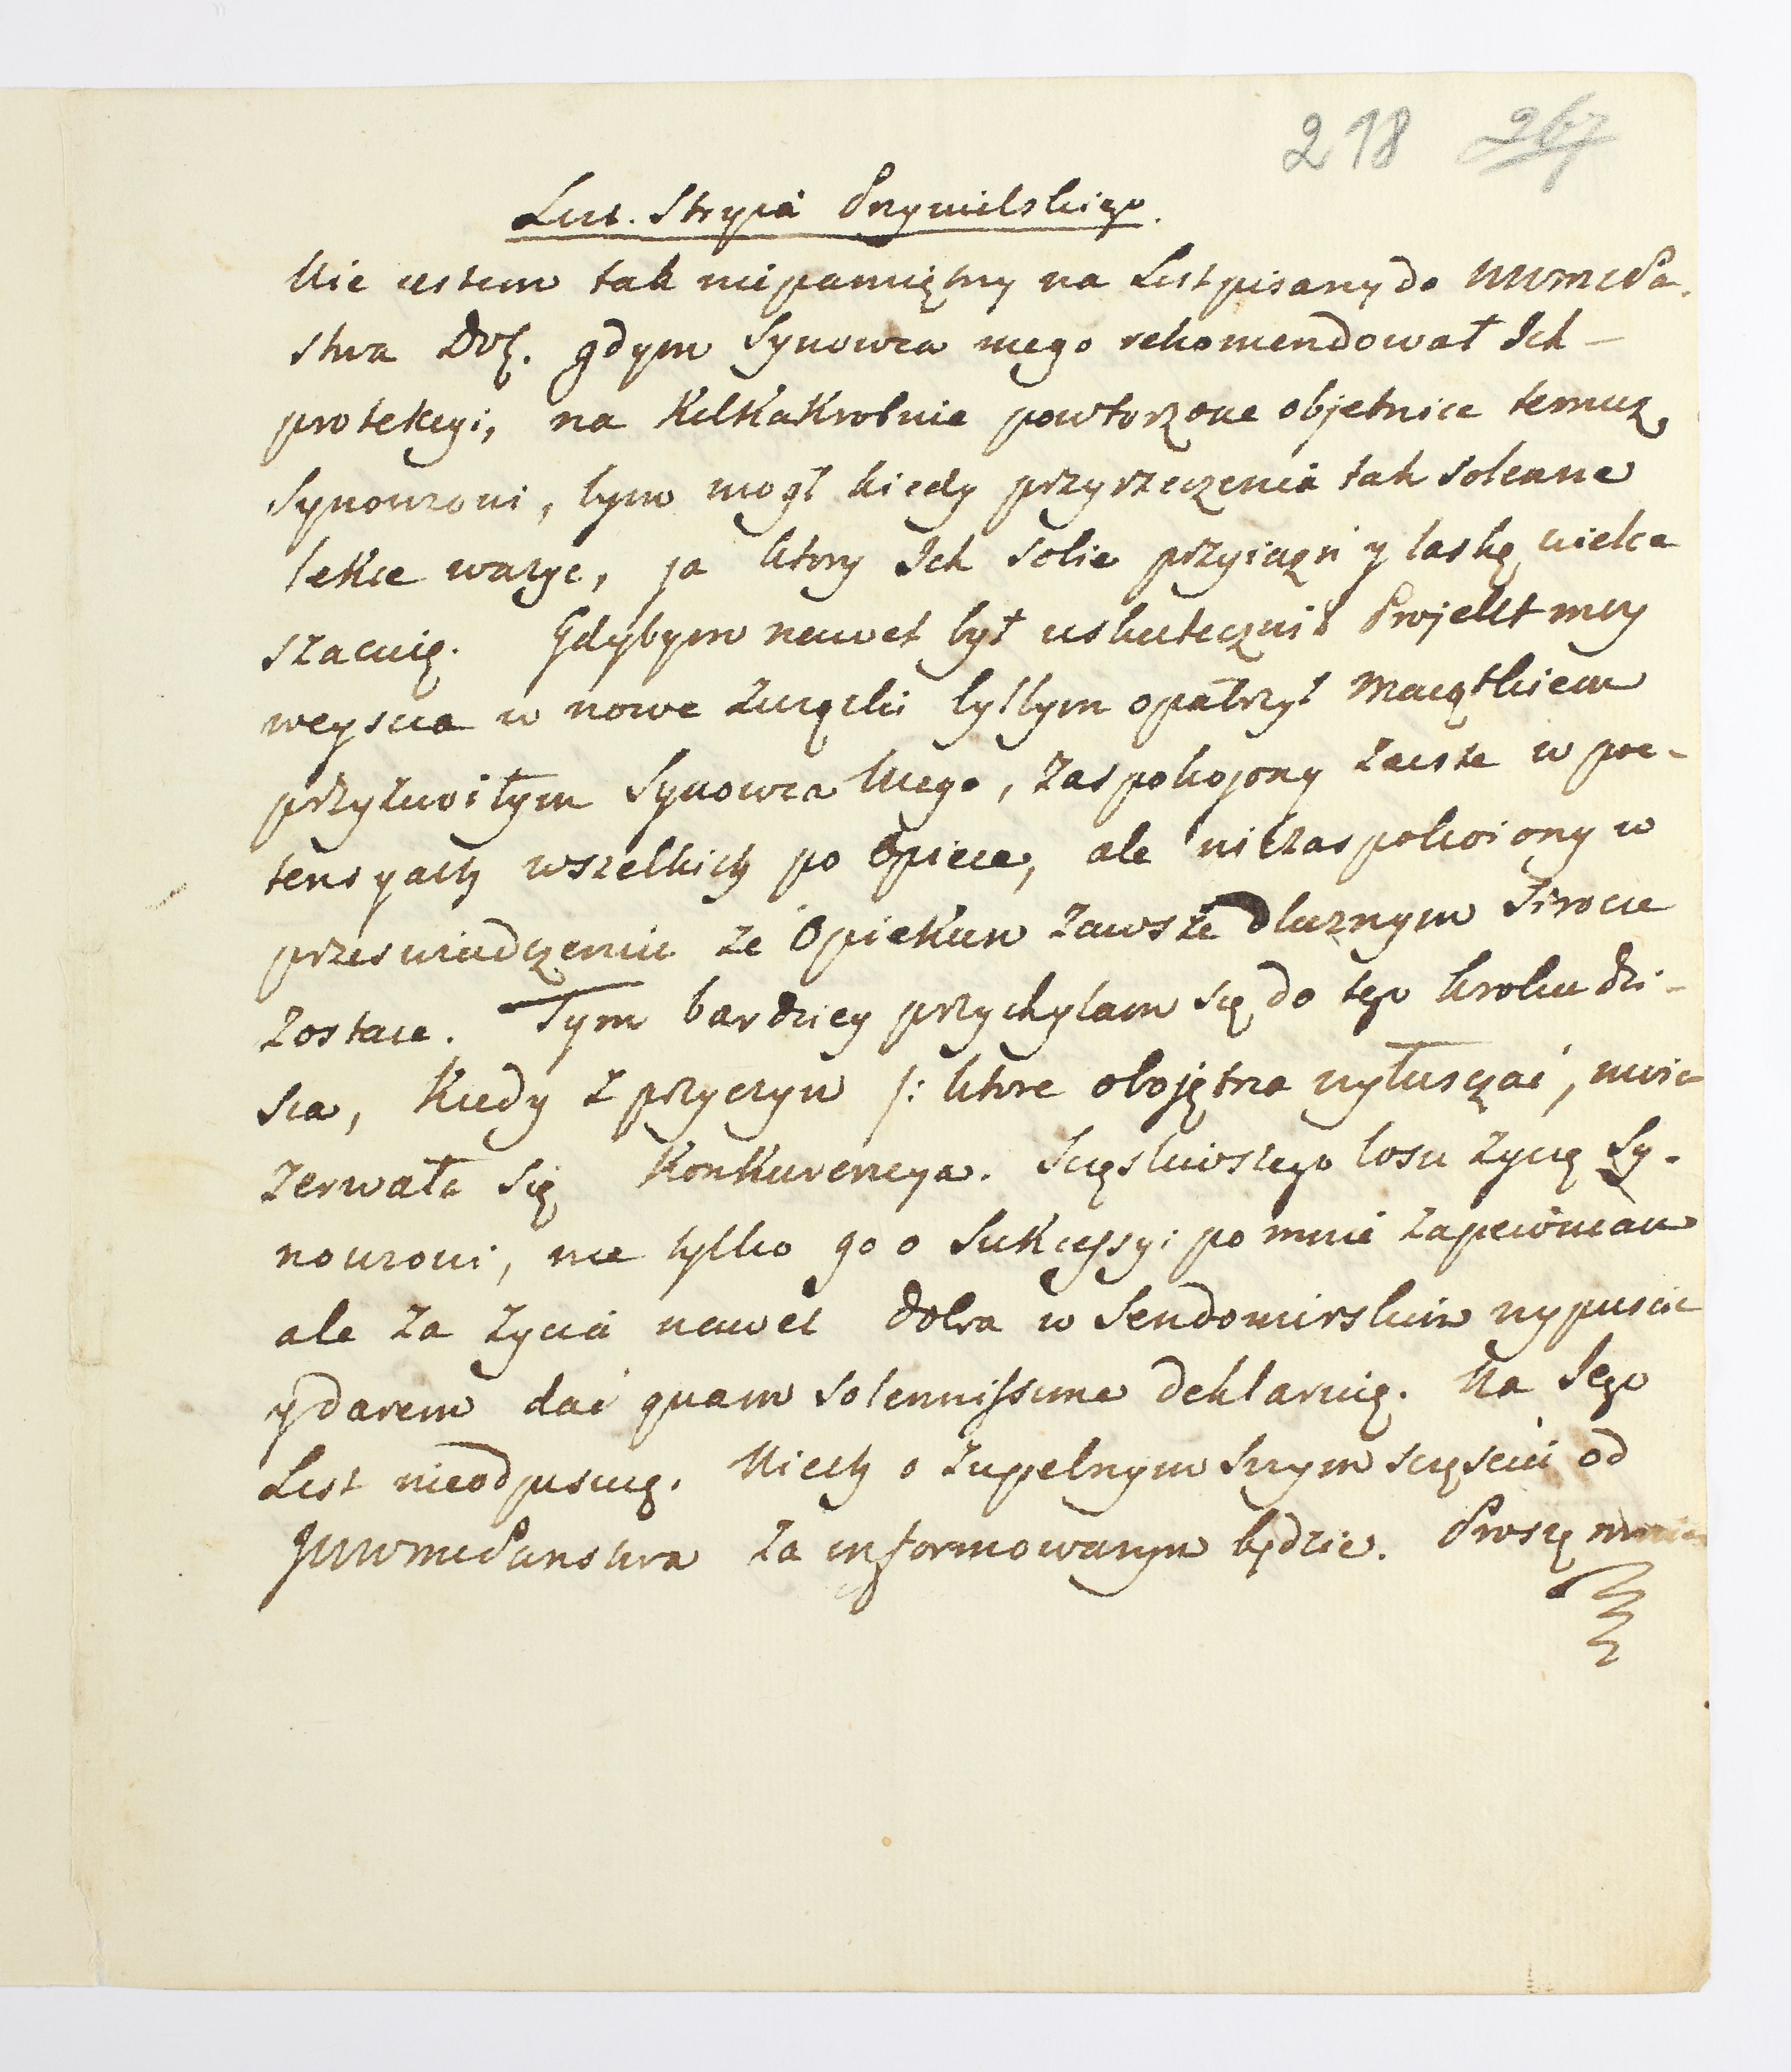 218 267
List. Stryia Przymilskiego.
Nie iestem tak niepamiętny na List pisany do WWmcPa-
stwa Dob. gdym Synowca mego rekomendował Ich
protekcyi, na kilkakrotnie powtorzone objetnice temuz
Synowcowi, bym mogł kiedy przyrzeczenia tak solenne
lekce wazyc, ja ktory Ich sobie przyiazn y łaskę wielce
szacuię. Gdybym nawet był uskutecznił Projekt moy
weyscia w nowe Zwiąski byłbym opatrzył Maiątkiem
przyzwoitym Synowca Mego, zaspokojony zawsze w pre-
tensyach wszelkich po Opiece, ale niezaspokoiony w
przeswiadczeniu ze Opiekun zawsze dluznym Sirocie
zostaie. Tym bardziey przychylam się do tego kroku dzi-
sia, kiedy z przyczyn /: ktore obojętna wyłuszczać, 
zerwała się Konkurencya. Sczęsliwszego losu zyczę Sy-
nowcowi, nie tylko go o Sukcessyi po mnie zapewniam
ale za zycia nawet dobra w Sendomirskim wypuscic
y darem dać quam solennissime deklaruię. Na Jego
List nieodpuscię. Niech o zupełnym swym sczęsciu od
JWWmcPanstwa za informowanym będzie. Proszę mnie